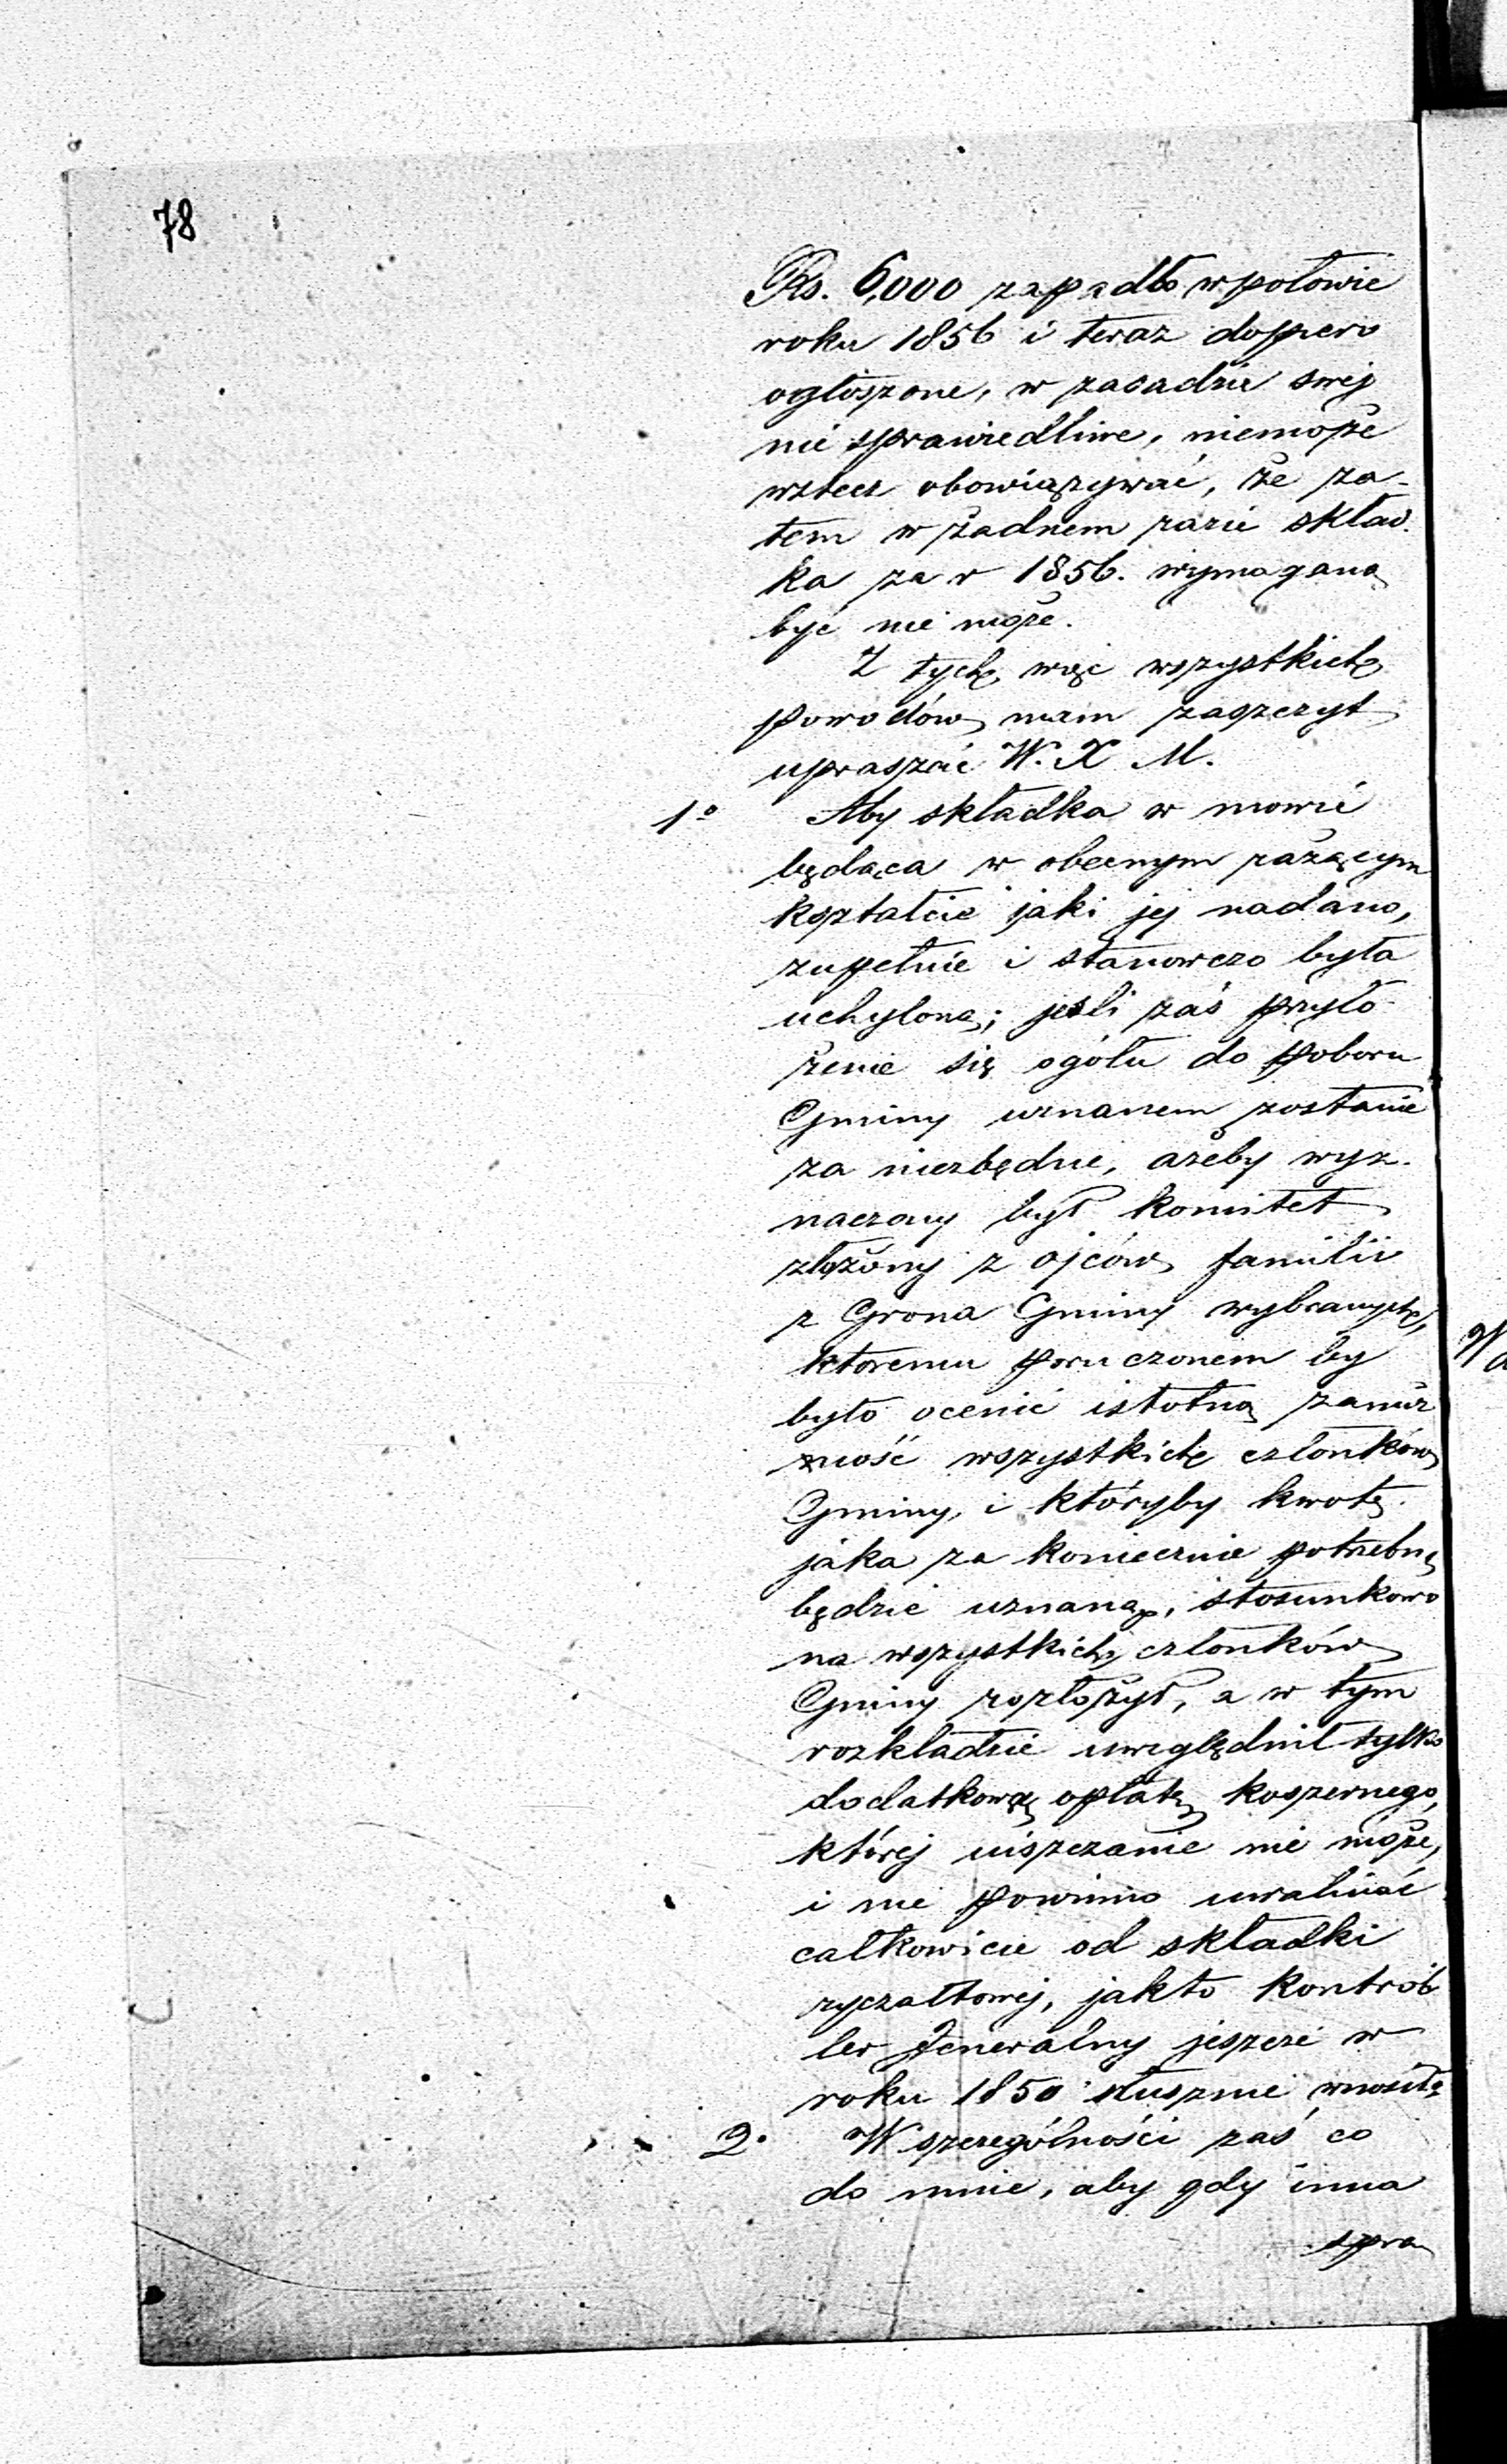 78
Rs. 6,000 zapadło w połowie
roku 1856 i teraz dopiero
ogłoszone, w zasadzie swej
nie sprawiedliwe, niemoże
wstecz obowiązywać, że za-
tem w żadnem razie skład.
ka za r 1856. wymaganą
być nie może.
Z tych więc wszystkich
powodów mam zaszczyt
upraszać W. X M.
1º Aby składka w mowie
będąca w obecnym rażącym
kształcie jaki jej nadano,
zupełnie i stanowczo była
uchyloną; jeśli zaś przyło
żenie się ogółu do poboru
Gminy uznanem zostanie
za niezbędne, ażeby wyz.
naczony był komitet
złożony z ojców familii
z Grona Gminy wybranych,
któremu poruczonem by
było ocenić istotną zamoż
ność wszystkich członków
Gminy, i któryby kwotę
jaka za koniecznie potrzebną
będzie uznaną, stosunkowo
na wszystkich członków
Gminy rozłożył, a w tym
rozkładzie uwzględnił tylko
dodatkową opłatę koszernego,
której uiszczanie nie może,
i nie powinno uwalniać
całkowicie od składki
ryczałtowej, jak to Kontrol
ler Jeneralny jeszcze w
roku 1850 słusznie wnosił
2. W szczególności zaś co
do mnie, aby gdy inna
spra